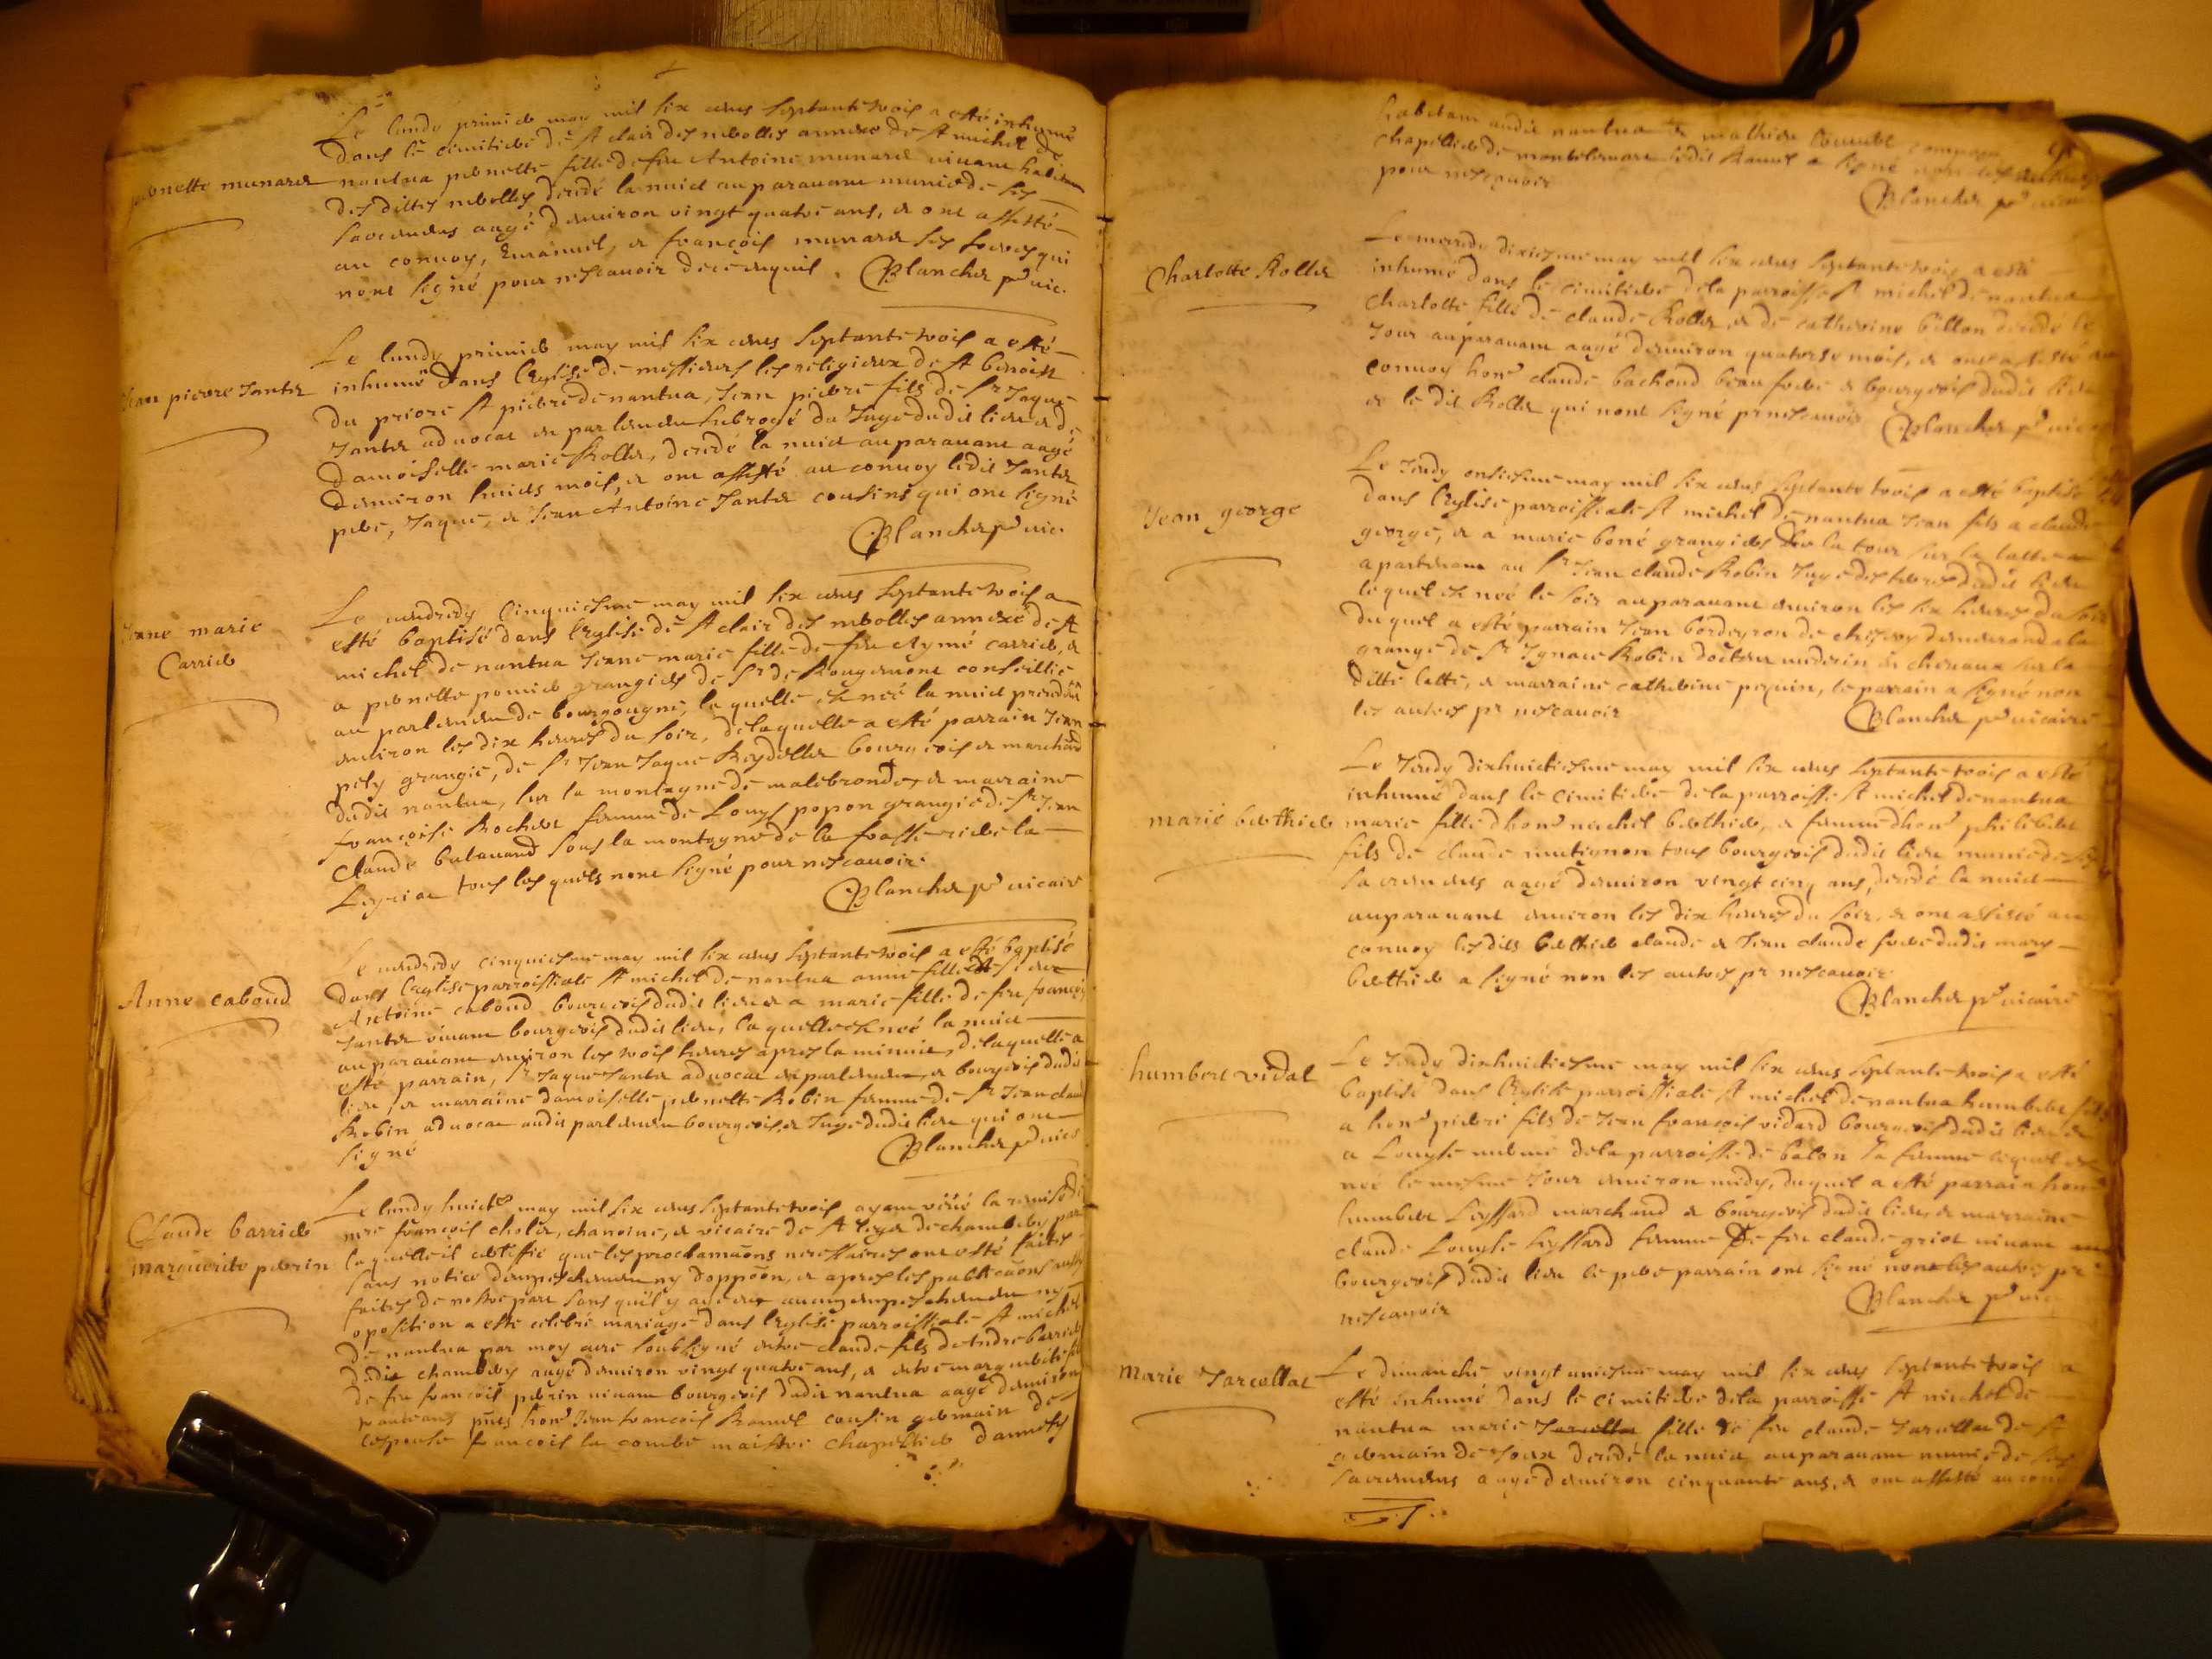 Le lundy premier may mil six cens septante trois a esté inhumé
dans le cimitiere de St clair des nerolles annexe de St michel de
pernette munard
nantua pernette fille de feu Antoine munard vivant habitant
des dittes nerolles decedé la nuict auparavant munie de ses
sacremens aagé d'environ vingt quatre ans, et ont assisté
au convoy, Emanuel, et françois munard ses freres qui
nont signé pour ne scavoir de ce enquis. Blanchet pr vic.
Le lundy premier may mil six cens septante trois a esté
Jean pierre Jantet
inhumé dans l'Eglise de messieurs les religieux de St benoist
du prioré St pierre de nantua, Jean pierre fils de Sr Jaque
Jantet advocat en parlement subrogé du Juge dudit lieu et de
damoiselle marie Rollet, decedé la nuict auparavant aagé
d'environ huict mois, et ont assisté au convoy ledit Jantet
pere, Jaque, et Jean Antoine Jantet cousins qui ont signé
Blanchet pr vic.
Le vendredy cinquiesme may mil six cens septante trois a
Jeanne marie
Carrier
esté baptisé dans l'eglise de St clair des nerolles annexe de St
michel de nantua Jeanne marie fille de feu Aymé carrier, et
a pernette pomier grangiers de Sr de Rougemont conseillier
au parlement de bourgougne, la quelle est née la nuict precedente
environ les dix heures du soir, de laquelle a esté parrain Jean
pety grangié, de Sr Jean Jaque Reydellet bourgeois et marchand
dudit nantua, sur la montagne de malebronde, et marraine
françoise Rochet femme de Louys popon grangié de Sr Jean
Claude balavand sous la montagne de la
tous les quels nont signé pour ne scavoir.
Blanchet pr vicaire
Le vendredy cinquiesme may mil six cens septante trois a esté baptisé
Anne caboud
dans l'eglise parroissiale St michel de nantua anne fille
Antoine caboud bourgeois dudit lieu et a marie fille de feu françois
Jantet vivant bourgeois dudit lieu, laquelle est née la nuict
auparavant environ les trois heures apres la minuit, de laquelle a
esté parrain, Sr Jaque Jantet advocat en parlement, et bourgeois dudit
lieu et marraine damoiselle pernette Robin femme de Sr Jean claude
Robin advocat audit parlement bourgeois, et Juge dudit lieu qui ont
signé
Blanchet pr vic.
Le lundy huict may mil six cens septante trois ayant veu la remise de
Claude barrier
marguerite perrin
mre françois cholet, chanoine, et vicaire de St leger de chambery par
laquelle il certifie que les proclamaons necessaires ont esté faites
sans notice d'empeschement ny d'oppoon, et apres les publicaons aussy
faites de nostre part sans qu'il y aye eu aucun empeschement ny
oposition a esté celebré mariage dans l'eglise parroissiale St michel
de nantua par moy curé soubsigné entre claude fils de André barrier
dudit chambery aagé d'environ vingt quatre ans, et entre marguerite fille
de feu françois perrin vivant bourgeois dudit nantua aagé d'environ
trante ans pnts honr Jean françois Ramel cousin germain de
lespouse françois la combe maistre chapellier d'annessy
habitant audit nantua et mathieu
chapellier de ledit Ramel a signé non les autres
pour ne scavoir
Blanchet pr vic.
Le mercredy dixiesme may mil six cens septante trois a esté
Charlotte Rollet
inhumé dans le cimitiere de la parroisse St michel de nantua
charlotte fille de claude Rollet, et de catherine billon decedé le
Jour auparavant aagé d'environ quatorse mois, et ont assisté au
convoy honr claude bachoud beau frere et bourgeois dudit lieu
et le dit Rollet qui nont signé pr ne scavoir Blanchet pr vic.
Le Jeudy onsiesme may mil six cens septante trois a esté baptisé
Jean george
dans l'Eglise parroissiale St michel de nantua Jean fils a claude
george, et a marie boné grangiers de la tour sur la latte
apartenant au Sr Jean claude Robin Juge des terres dudit lieu
lequel est né le soir auparavant environ les six heures du soir
duquel a esté parrain Jean bordeyron de
grange de Sr Ignace Robin docteur medecin sur la
ditte latte, et marraine catherine pequin, le parrain a signé non
les autres pr ne scavoir
Blanchet pr vicaire
Le Jeudy dixhuictiesme may mil six cens septante trois a esté
inhumé dans le cimitiere de la parroisse St michel de nantua
marie berthier
marie fille d'honr michel berthier, et femme d'honr philibert
fils de claude mutignon tous bourgeois dudit lieu munie de ses
sacremens aagé d'environ vingt cinq ans, decedé la nuict
auparavant environ les dix heures du soir, et ont assisté au
convoy lesdits berthier claude et Jean claude frere dudit mary
berthier a signé non les autres pr ne scavoir
Blanchet pr vicaire
Le Jeudy dixhuictiesme may mil six cens septante trois a esté
humbert vidal
baptisé dans l'Eglise parroissiale St michel de nantua humbert fils
a honr pierre fils de Jean françois vidard bourgeois dudit lieu et
a Louyse de la parroisse de balon sa femme lequel est
né le mesme Jour environ midy, duquel a esté parrain honr
humbert Leyssard marchand et bourgeois dudit lieu, et marraine
claude Louyse Leyssard femme de feu claude griot vivant
bourgeois dudit lieu le pere parrain ont signé non les autres pr
ne scavoir
Blanchet pr vic.
Marie Jarcellat
Le dimanche vingt uniesme may mil six cens septante trois a
esté inhumé dans le cimitiere de la parroisse St michel de
nantua marie Jarcellat fille de feu claude Jarcellat de St
germain de Joux decedé la nuict auparavant munie de ses
sacremens aagé d'environ cinquante ans, et ont assisté au conv